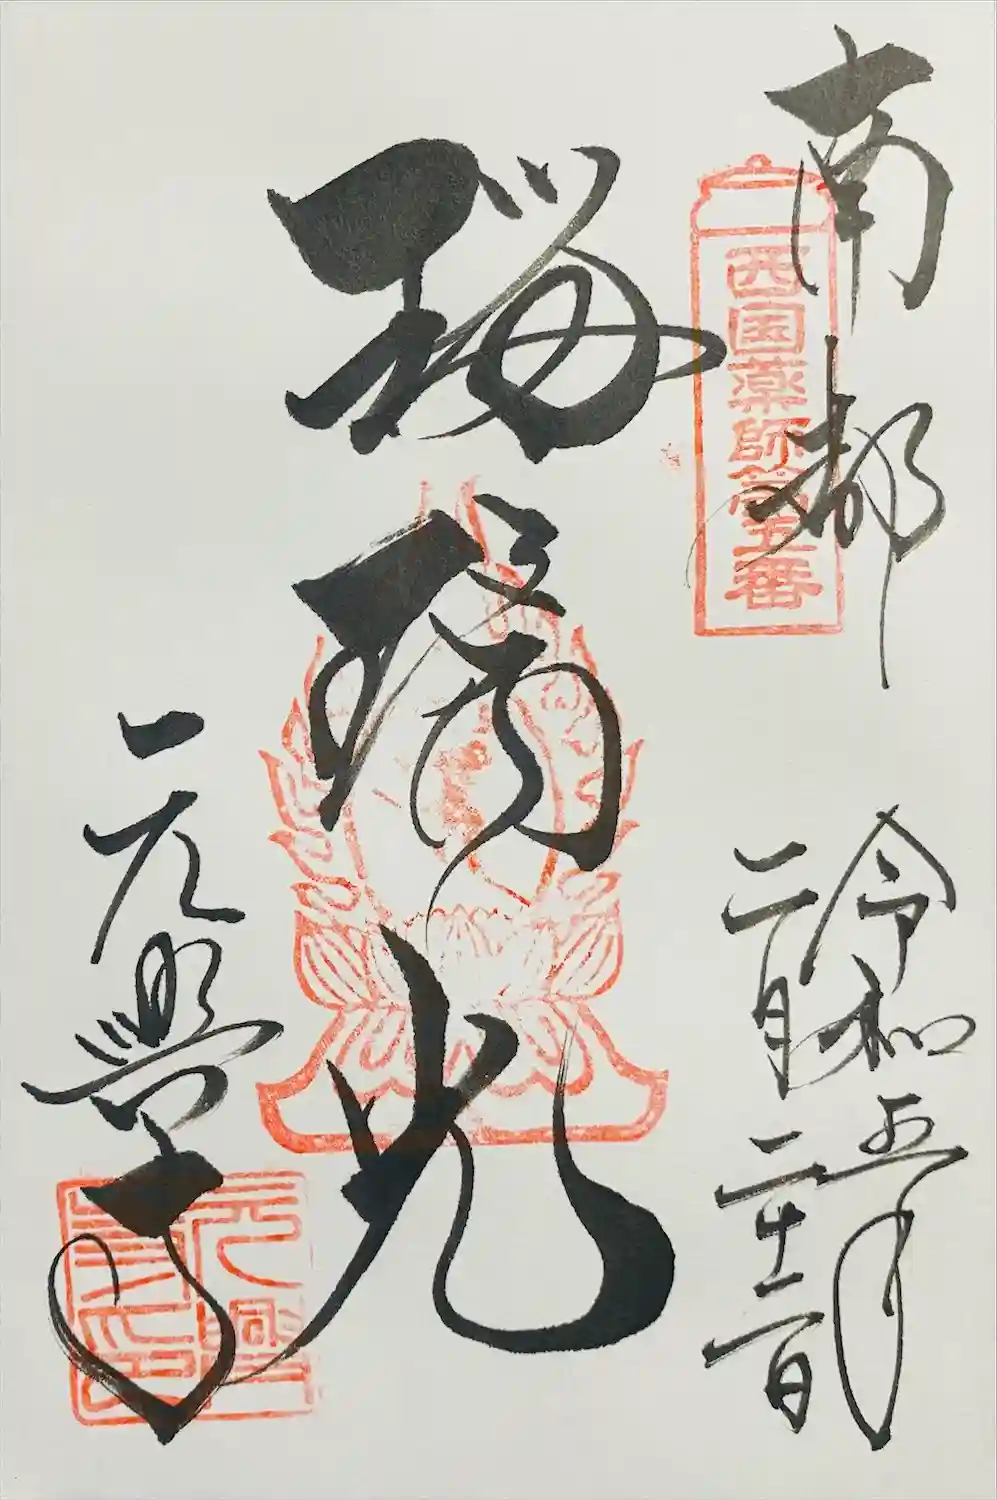 南都
西国薬師第五番
瑠璃光
令和五年
二月二十二日
元興寺
元興
寺之印